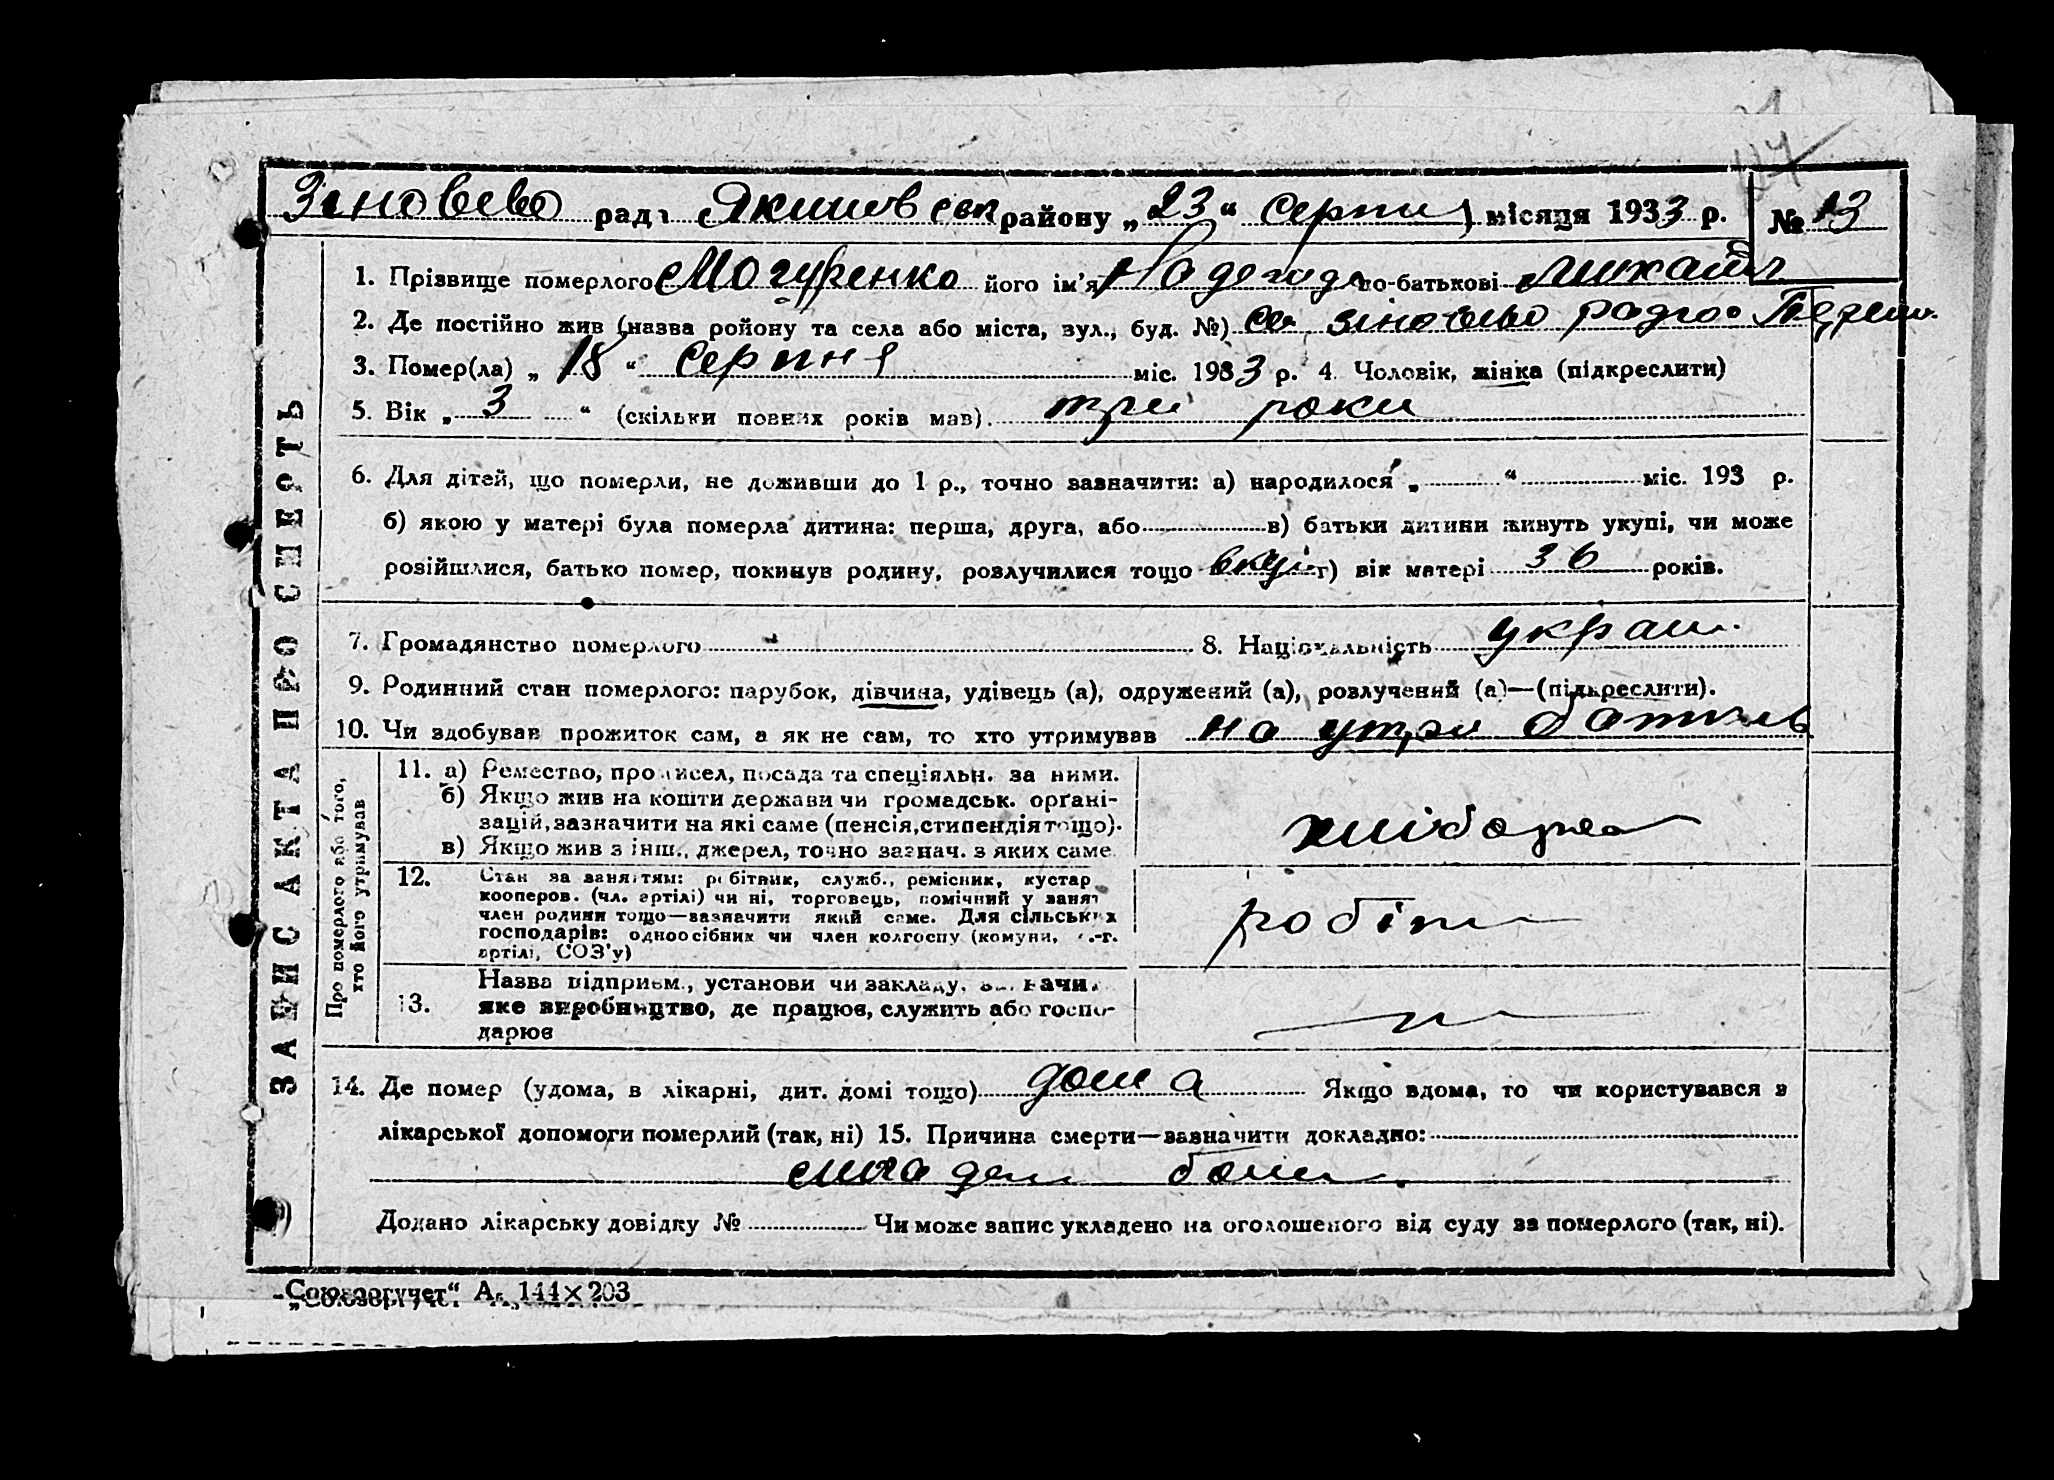 Зіновєво раді Якимов сок району „23“ Серпня місяця 1933 р. № 13
1. Прізвище померлого Могуренко його ім’я Надежда по-батькові Михайл
2. Де постійно жив (назва ройону та села або міста, вул., буд. №) Зіновєво радгос
3. Помер(ла) „18“ Серпня міс. 1933 р. 4. Чоловік, жінка (підкреслити)
5. Вік „3“ (скільки повних років мав) три роки
6. Для дітей, що померли, не доживши до 1 р., точно зазначити: а) народилося „ “ міс. 193 р.
б) якою у матері була померла дитина: перша, друга, або в) батьки дитини живуть укупі, чи може
розійшлися, батько помер, покинув родину, розлучилися тощо вкупі г) вік матері 36 років.
7. Громадянство померлого 8. Національність україн.
9. Родинний стан померлого: парубок, дівчина, удівець (а), одружений (а), розлучений (а)—(підкреслити).
10. Чи здобував прожиток сам, а як не сам, то хто утримував на утрэм батьків
ЗАПИС АКТА ПРО СМЕРТЬ
Про померлого або того, хто його утримував
11. а) Ремество, промисел, посада та спеціяльн. за ними.
б) Якщо жив на кошти держави чи громадськ. органі-
зацій, зазначити на які саме (пенсія, стипендія тощо).
в) Якщо жив з інш., джерел, точно зазнач. з яких саме
12. Стан за заняттям: робітник, служб., ремісник, кустар
кооперов. (чл. артілі) чи ні, торговець, помічний у занят
член родини тощо—зазначити який саме. Для сільських
господарів: одноосібник чи член колгоспу (комуни, с.-г.
артілі, СОЗ’у)
робітн
13. Назва підприєм., установи чи закладу, зазначит
яке виробництво, де працює, служить або госпо-
дарює
14. Де помер (удома, в лікарні, дит. домі тощо) дома Якщо вдома, то чи користувався з
лікарської допомоги померлий (так, ні) 15. Причина смерти—зазначити докладно:
Додано лікарську довідку № Чи може запис укладено на оголошеного від суду за померлого (так, ні).
„Союзоргучет“ А₅ 144×203